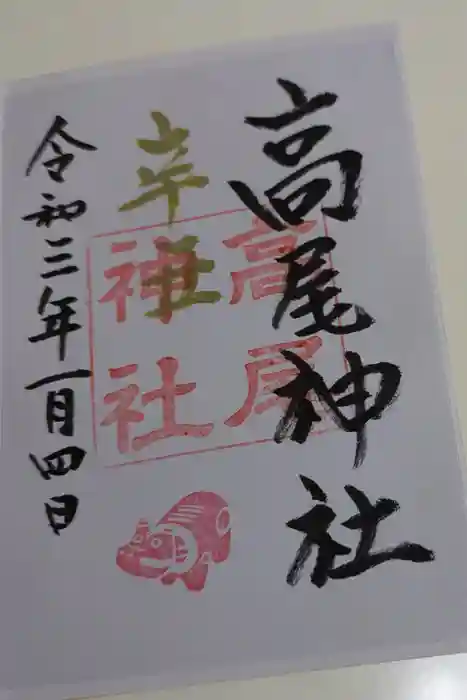 高尾神社
辛丑
高尾
神社
令和三年一月四日